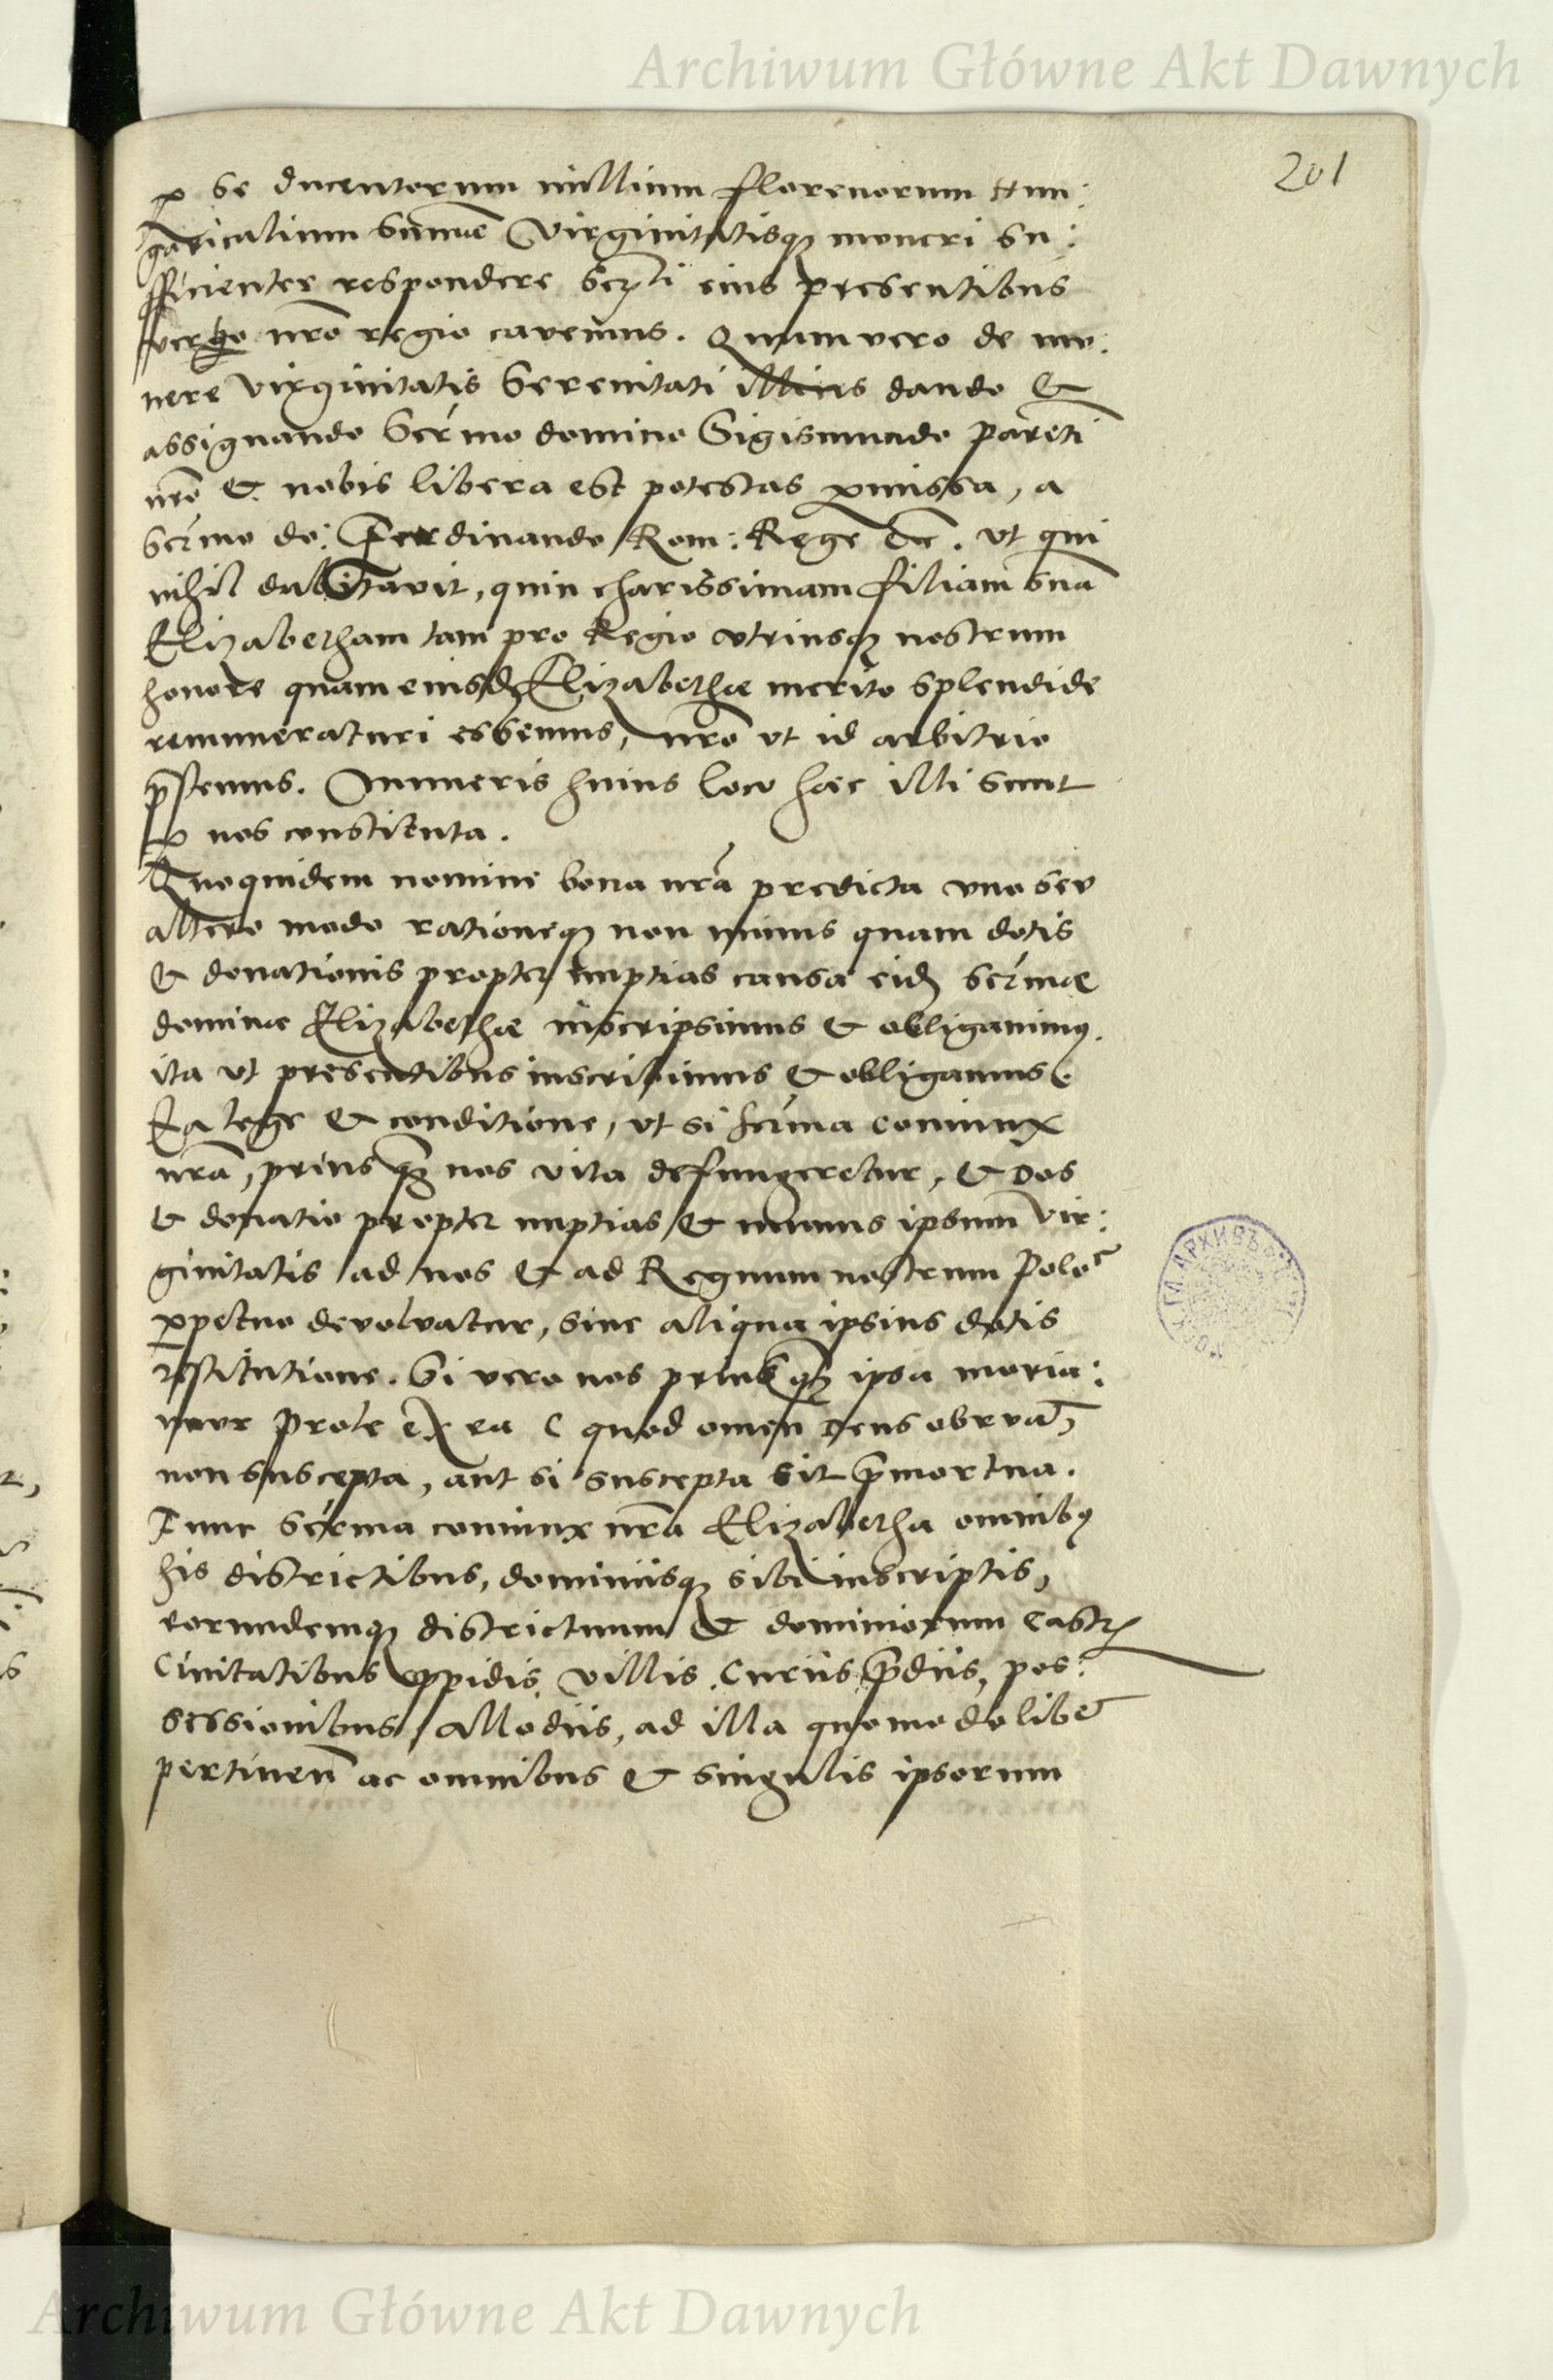 Archiwum Główne Akt Dawnych
201
p se ducentorum millium florenorum Hun:
garicalium summe Virginitatisq; muneri su:
fficienter respondere Serti eius presentibus
verbo nro regio cavemus. Quum vero de mu:
nere virginitatis Serenitati illius dando &
assignando Sermo domino Sigismundo pareti
nro & nobis libera est potestas pmissa, a
Sermo do: Ferdinando Rom: Rege etc. ut qui
nihil dubitavit, quin charissimam filiam sua
Elizabetham tam pro Regio utriusq; nostrum
honore quam eiusd; Elizabethæ merito splendide
remuneraturi essemus, nro ut id arbitrio
pstemus. Muneris huius loco hæc illi sunt
p nos constituta.
Quoquidem nomine bona nra predicta uno seu
altero modo rationeq; non minus quam dotis
& donationis propter nuptias causa eid; Sermæ
dominæ Elizabethæ inscripsimus & obligavimus.
ita ut presentibus inscribimus & obligamus.
Ea lege & conditione, ut si serma coniunx
nra, prius q; nos vita defungeretur, & dos
& donatio propter nuptias & munus ipsum vir:
ginitatis ad nos & ad Regnum nostrum Polo
ppetuo devolvatur, sine aliqua ipsius dotis
restitutione. Si vero nos prius q; ipsa moria:
mur prole ex ea ( quod omen Deus obruat)
non suscepta, aut si suscepta sit pmortua.
Tunc Serma coniunx nra Elizabetha omnibus
his districtibus, dominiisq; sibi inscriptis,
eorumdemq; districtuum & dominiorum Castr
Civitatibus oppidis, villis, Curiis, pdiis, pos:
sessionibus, Allodiis, ad illa quomodolibe
pertinen ac omnibus & singulis ipsorum
Archiwum Główne Akt Dawnych